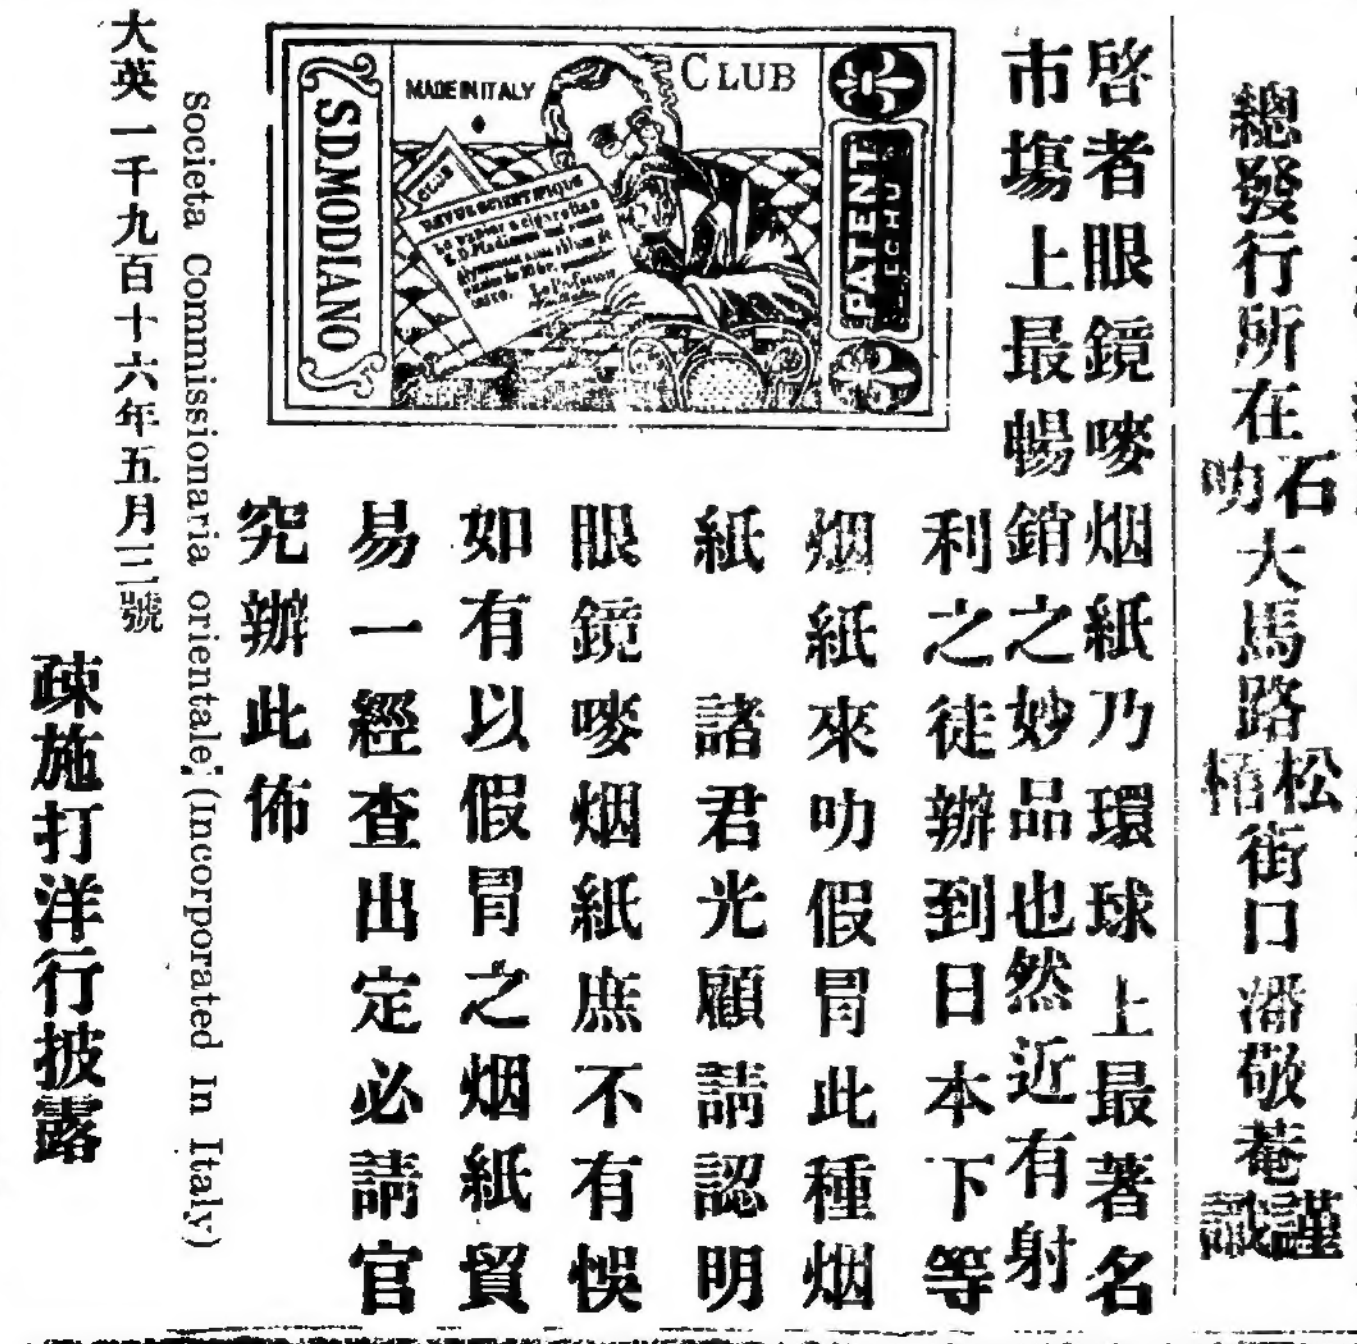 總發行所在石叻大馬路松栢街口潘敬菴謹識
啓者眼鏡嘜烟紙乃環球上最著名
市塲上最暢銷之妙品也然近有射
利之徒辦到日本下等
烟紙來叻假冒此種烟
紙 諸君光顧請認明
眼鏡嘜烟紙庶不有悞
如有以假冒之烟紙貿
易一經查出定必請官
究辦此佈
S.D.MODIANO
MADE IN ITALY
CLUB
CLUB
REVUE SCIENTIFIQUE
PATENT
ECHU
Societa Commissionaria orientale; (Incorporated In Italy)
大英一千九百十六年五月三號
疎施打洋行披露